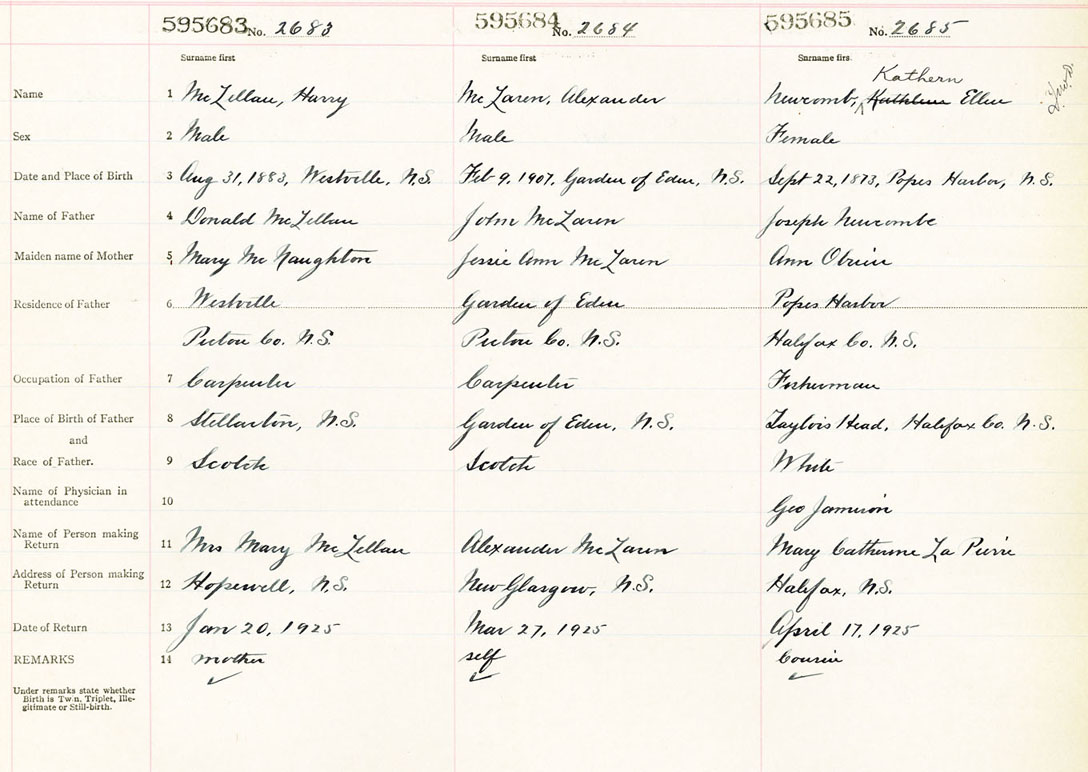 595683 No. 2683 595684 No. 2684 595685 No. 2685
Surname first Surname first Surname firs.
Kathern
Name 1 McLellan, Harry McLaren, Alexander Newcomb, Kathleen Ellen
Sex 2 Male Male Female
Date and Place of Birth 3 Aug 31, 1883, Westville, N.S. Feb 9, 1907, Garden of Eden, N.S. Sept 22, 1873, Popes Harbor, N.S.
Name of Father 4 Donald McLellan John McLaren Joseph Newcombe
Maiden name of Mother 5 Mary McNaughton Jessie Ann McLaren Ann Obrien
Residence of Father 6 Westville Garden of Eden Popes Harbor
Pictou Co. N.S. Pictou Co. N.S. Halifax Co. N.S.
Occupation of Father 7 Carpenter Carpenter Fisherman
Place of Birth of Father 8 Stellarton, N.S. Garden of Eden, N.S. Taylors Head, Halifax Co. N.S.
and
Race of Father. 9 Scotch Scotch White
Name of Physician in
attendance 10 Geo Jamieson
Name of Person making
Return 11 Mrs Mary McLellan Alexander McLaren Mary Catherine La Pierre
Address of Person making
Return 12 Hopewell, N.S. New Glasgow, N.S. Halifax, N.S.
Date of Return 13 Jan 20, 1925 Mar 27, 1925 April 17, 1925
REMARKS 14 mother self Cousin
Under remarks state whether
Birth is Twin, Triplet, Ille-
gitimate or Still-birth.